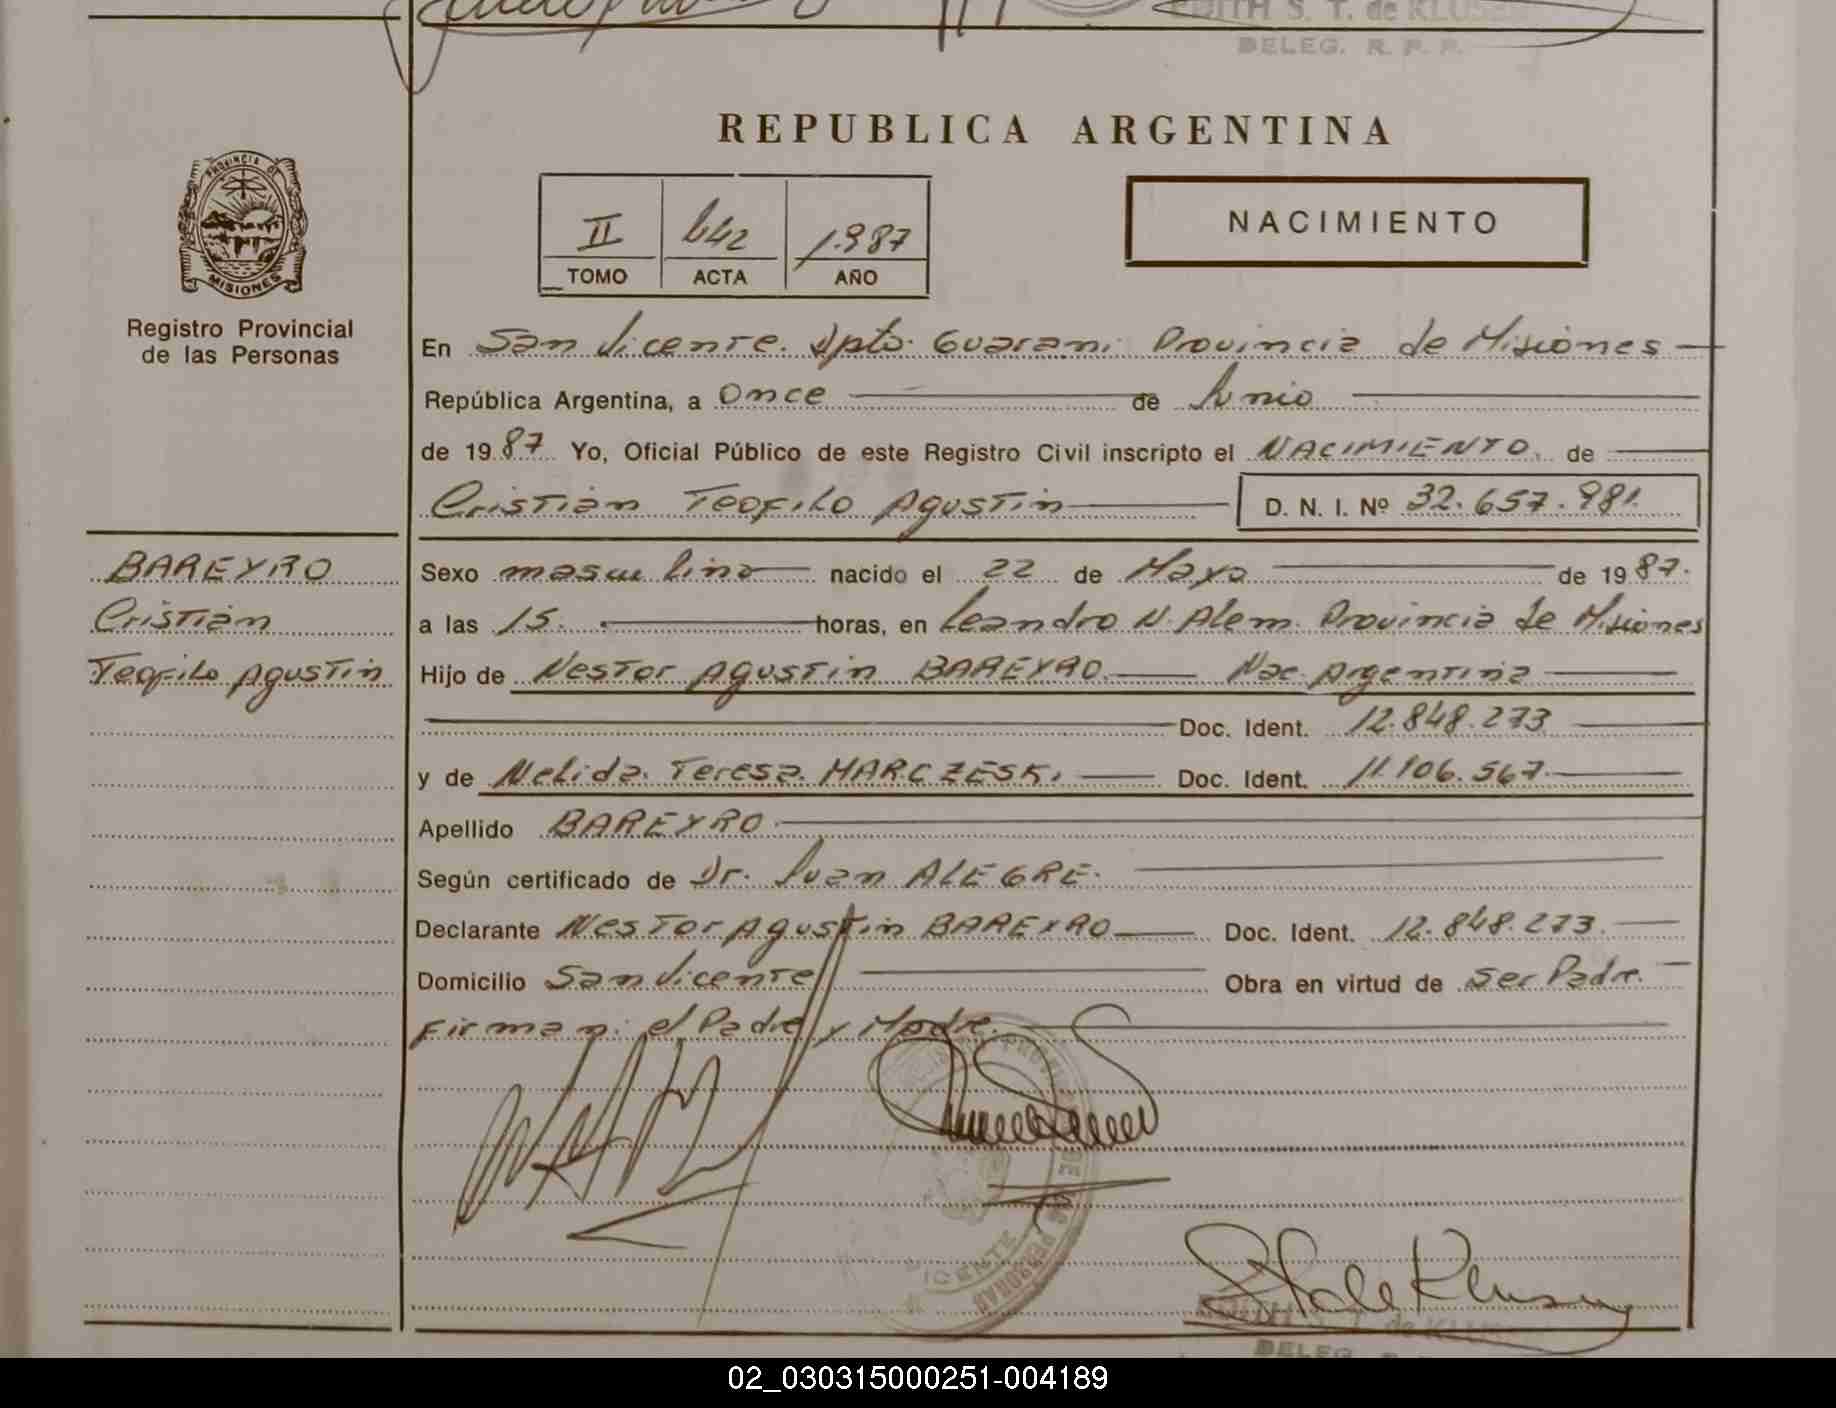 EDITH S. T. de KLUSENER
DELEG. R. P. P.
REPUBLICA ARGENTINA
PROVINCIA DE
MISIONES
Registro Provincial
de las Personas
II 642 1.987
TOMO ACTA AÑO
NACIMIENTO
En San Vicente. Dpto. Guarani Provincia de Misiones
República Argentina, a once de Junio
de 1987 Yo, Oficial Público de este Registro Civil inscripto el NACIMIENTO. de
Cristian Teofilo Agustin D. N. I. Nº 32.657.981.
BAREYRO
Cristian
Teofilo Agustin
Sexo masculino nacido el 22 de Mayo de 1987.
a las 15. horas, en Leandro N. Alem. Provincia de Misiones
Hijo de Nestor Agustin BAREYRO. Nac. Argentina
Doc. Ident. 12.848.273
y de Nelida Teresa MARCZESKI Doc. Ident. 11.106.567.
Apellido BAREYRO.
Según certificado de Dr. Juan ALEGRE.
Declarante Nestor Agustin BAREYRO Doc. Ident. 12.848.273.
Domicilio San Vicente Obra en virtud de ser Padre.
Firman: el Padre y Madre.
VICENTE
DE LAS PERSONAS
S. T. de Klusener
EDITH S. T. de KLUSENER
DELEG. R. P. P.
02_030315000251-004189